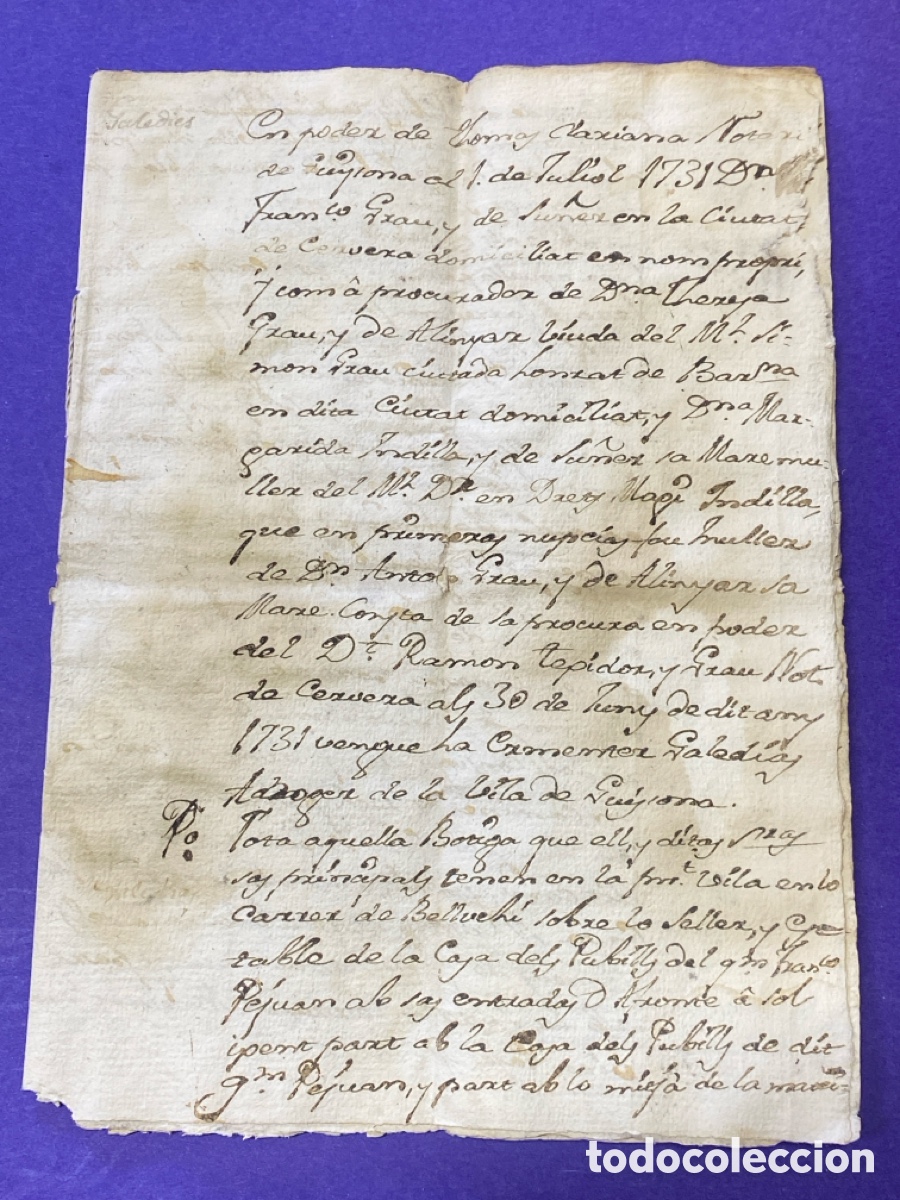 Galedies
En poder de Thomas Clariana Notari
de Guysona al 1. de Juliol 1731 Dn
Franco Grau, y de Suñer en la Ciutat
de Cervera domiciliat en nom propri,
y com â procurador de Dna Thereza
Grau, y de Alinyar Viuda del Mh. Si-
mon Grau ciutadà honrat de Barna
en dita Ciutat domiciliat, y Dna Mar-
garida Indilla, y de Suñer sa Mare mu-
ller del Mh. Dr en Drets Magi Indilla,
que en primeras nupcias fou muller
de Dn Anto Grau, y de Alinyar sa
Mare. Consta de sa procura en poder
del Dt. Ramon Tepidor, y Grau Not.
de Cervera als 30 de Juny de dit any
1731 vengue ha Ermenter Galedias
Adroger de la Vila de Guysona.
Po. Tota aquella Botiga que ell, y ditas Sras
sas principals tenen en la prnt Vila en lo
Carrer de Belluchi sobre lo Seller, y Es-
table de la Casa dels Pubills del qm Franco
Pejuan ab sas entradas & Afronte â sol
ixent part ab la Casa dels Pubills de dit
qm Pejuan, y part ab lo mitjà de la mate-
todocoleccion.net